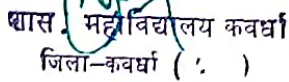 शास. महाविद्यालय कवर्धा
जिला-कवर्धा ( . )